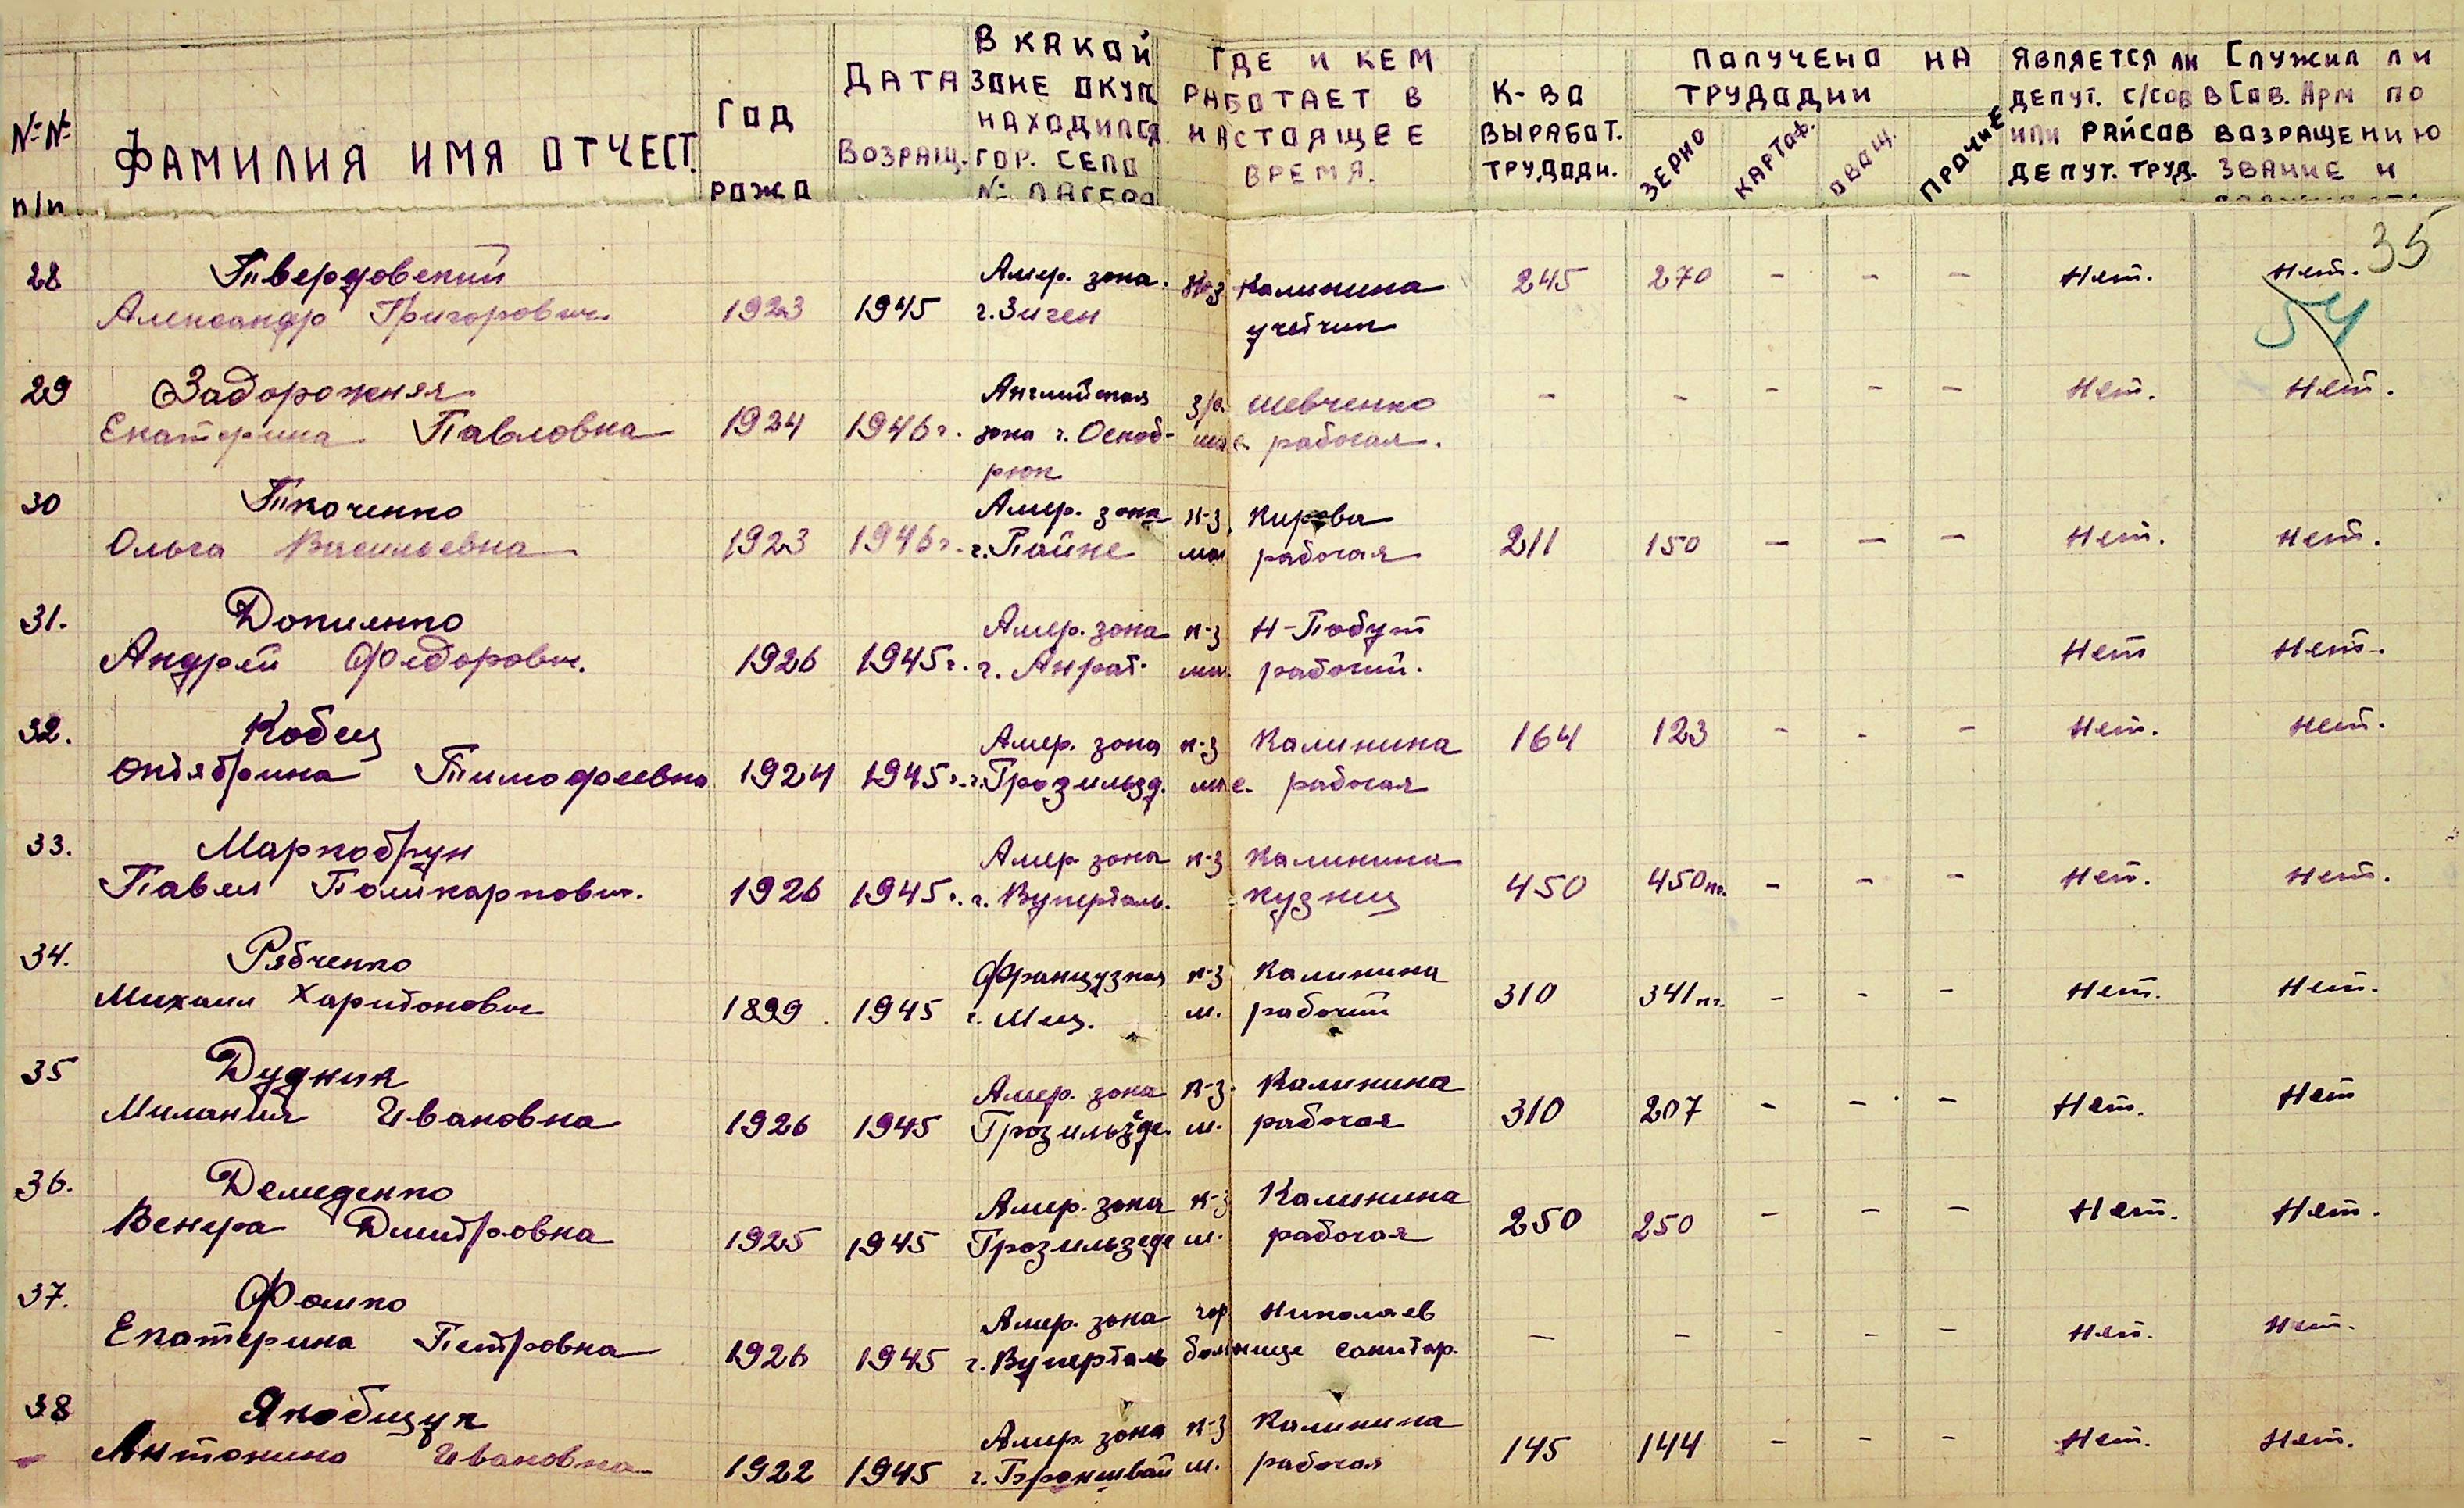 №№ п/п
ФАМИЛИЯ ИМЯ ОТЧЕСТ.
ГОД РОЖД
ДАТА ВОЗРАЩ.
В КАКОЙ ЗОНЕ ОКУП НАХОДИЛСЯ ГОР. СЕЛО № ЛАГЕРА
ГДЕ И КЕМ РАБОТАЕТ В НАСТОЯЩЕЕ ВРЕМЯ.
К-ВО ВЫРАБОТ. ТРУДОДН.
ПОЛУЧЕНО НА ТРУДОДНИ
ЗЕРНО КАРТОФ. ОВОЩ. ПРОЧИЕ
ЯВЛЯЕТСЯ ЛИ ДЕПУТ. С/СОВ ИЛИ РАЙСОВ ДЕПУТ. ТРУД.
СЛУЖИЛ ЛИ В СОВ. АРМ ПО ВОЗРАЩЕНИЮ ЗВАНИЕ И
35
54
28 Твердовский Амер. зона. к-з Калинина 245 270 - - - Нет. Нет.
Александр Григорович 1923 1945 г. Зиген учетчик
29 Задорожняя Английская з/с. Шевченко - - - - - Нет. Нет.
Екатерина Павловна 1924 1946г. зона г. Осноб- рабочая.
рюк
30 Ткаченко Амер. зона к-з Кирова
Ольга Васильевна 1923 1946г. г. Пайне рабочая 211 150 - - - Нет. Нет.
31. Допиленко Амер. зона к-з Н-Побут
Андрей Федорович. 1926 1945г. г. рабочий. Нет Нет.
32. Кобец Амер. зона к-з Калинина 164 123 - - - Нет. Нет.
Октябрина Тимофеевна 1924 1945г. г. Грозильзд. рабочая
33. Маркобрун Амер. зона к-з Калинина
Павел Поликарпович. 1926 1945г. г. Вуперталь. кузнец 450 450кг. - - - Нет. Нет.
34. Рябченко Французкая к-з Калинина
Михаил Харитонович 1899. 1945 г. Мец. м. рабочий 310 341кг. - - - Нет. Нет.
35 Дудник Амер. зона к-з. Калинина
Милания Ивановна 1926 1945 Грозильзде. м. рабочая 310 207 - - - Нет. Нет
36. Демеденко Амер. зона к-з Калинина
Венера Дмитровна 1925 1945 Грозильзеде м. рабочая 250 250 - - - Нет. Нет.
37. Фошко Амер. зона гор Николаев
Екатерина Петровна 1926 1945 г. Вуперталь больнице санитар. - - - - - Нет. Нет.
38 Якобщук Амер. зона к-з Калинина
Антонина Ивановна 1922 1945 г. Броншвай м. рабочая 145 144 - - - Нет. Нет.